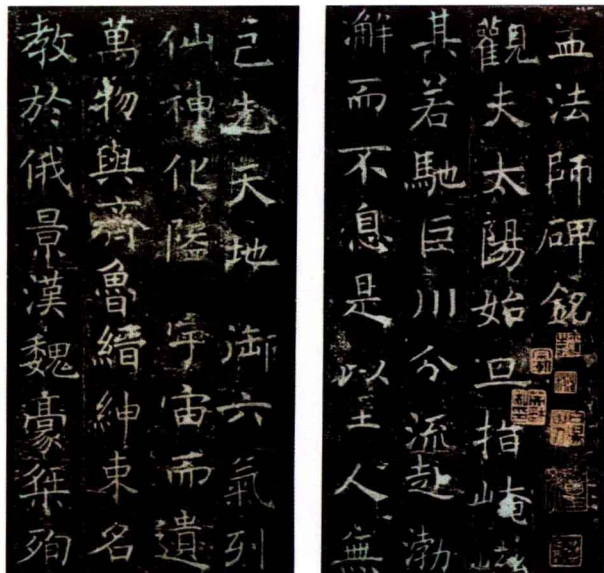 孟法師碑銘
觀夫太陽始旦指崦嵫
其若馳巨川分流赴渤
澥而不息是以至人無
己先天地御六氣列
仙神化隘宇宙而遺
萬物與齊魯縉紳束名
教於俄景漢魏豪桀殉